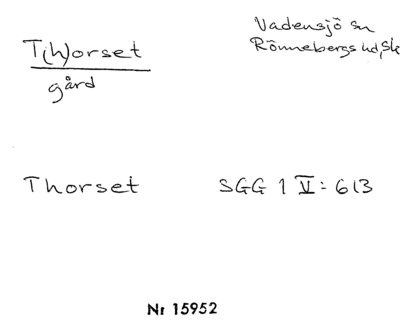 T(h)orset
gård
Vadensjö sn
Rönnebergs hd, Sk
Thorset SGG 1 V: 613
Nr 15952